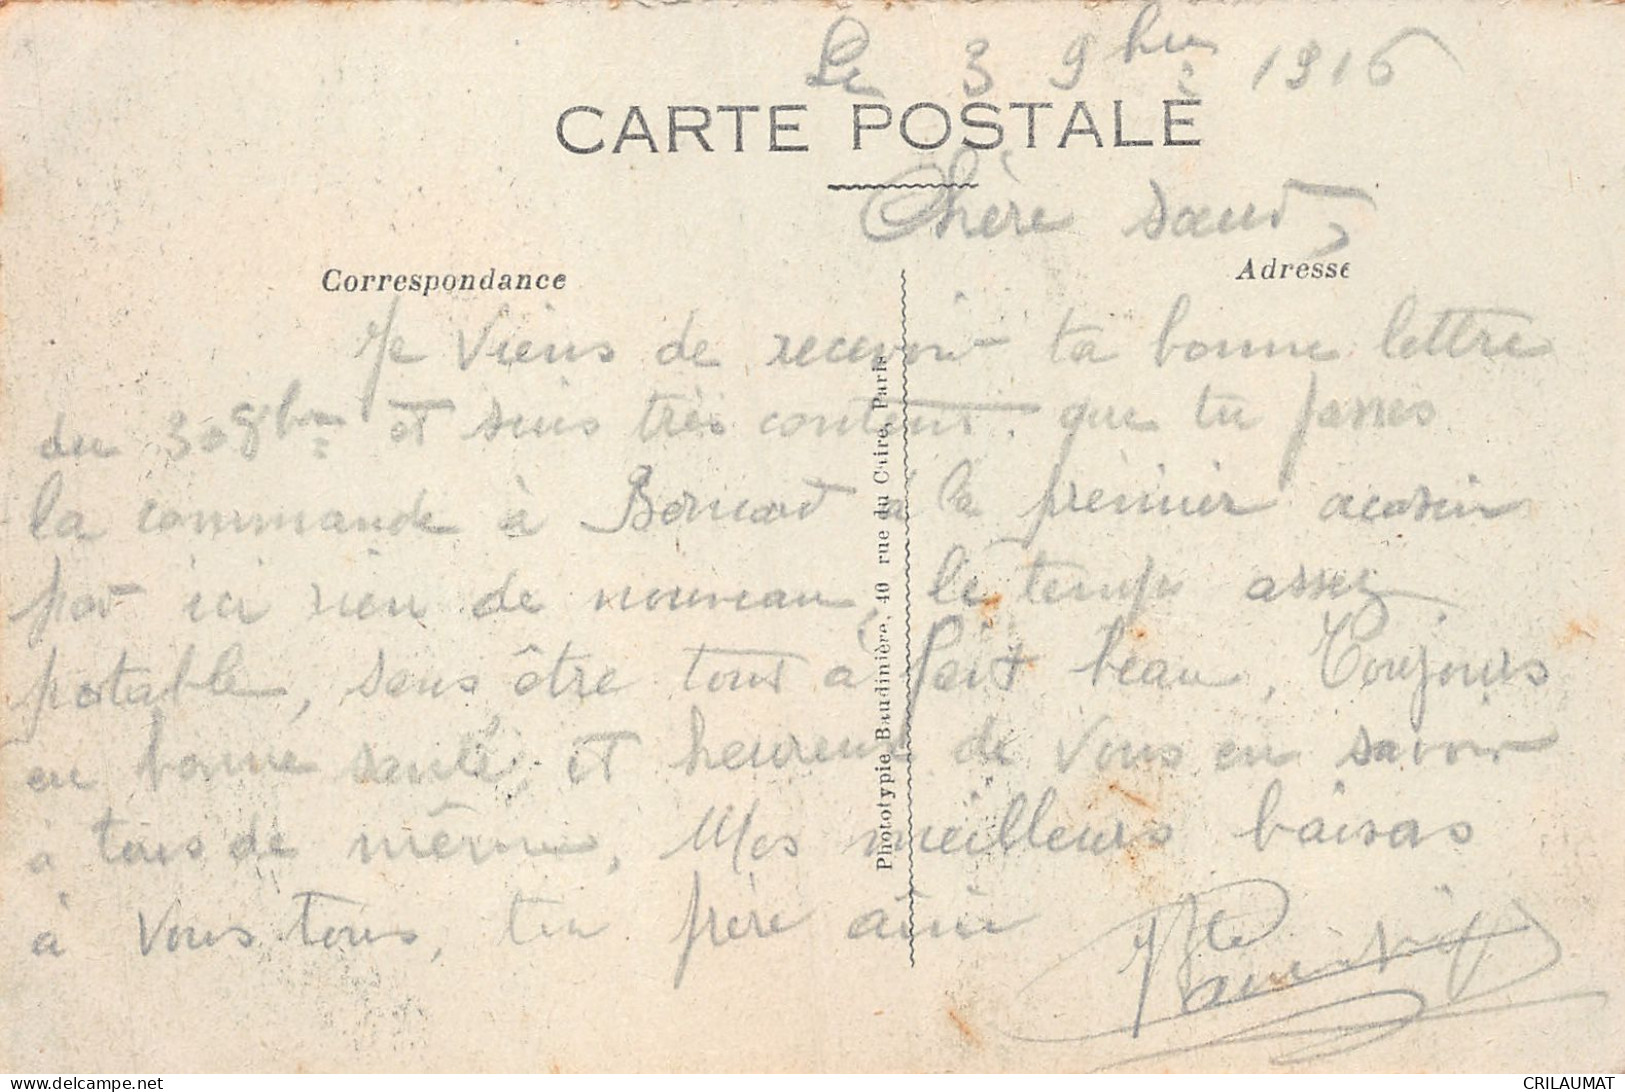 Le 3 9bre 1916
CARTE POSTALE
Chère sœur,
Correspondance
Adresse
Je viens de recevoir ta bonne lettre
du 30 8bre et suis très content que tu passes
la commande à à la premier
par ici rien de nouveau, le temps assez
potable, sans être tout à fait beau, Toujours
en bonne santé et heureux de vous en savoir
à tous de même, Mes meilleurs baisers
à vous tous, ton frère aimé
Phototypie Baudinière, 40 rue du Caire, Paris
CRILAUMAT